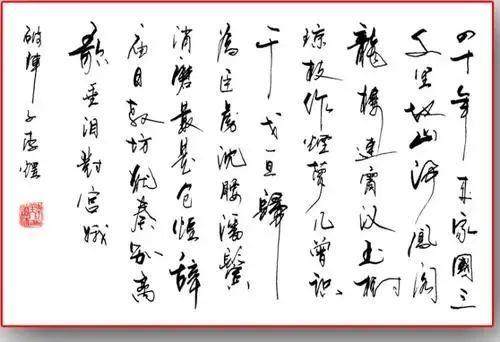 四十年来家國三
千里地山河鳳阁
龍樓連霄汉玉樹
琼枝作煙萝几曾识
干戈一旦歸
為臣虜沈腰潘鬓
消磨最是仓惶辞
庙日教坊犹奏别离
歌垂泪對宫娥
破陣子李煜